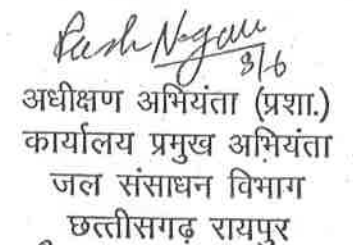 3/6
अधीक्षण अभियंता (प्रशा.)
कार्यालय प्रमुख अभियंता
जल संसाधन विभाग
छत्तीसगढ़ रायपुर